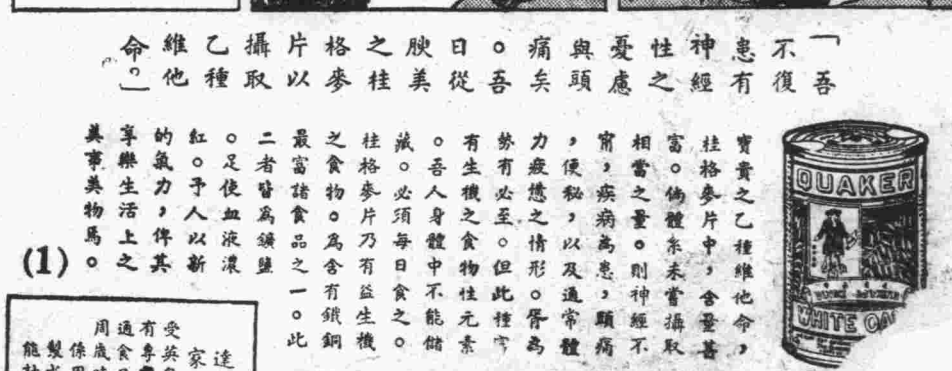 「吾
不復
患有
神經
性之
憂慮
與頭
痛矣
。吾
日從
腴美
之桂
格麥
片以
攝取
乙種
維他
命。」
QUAKER
WHITE OA
寶貴之乙種維他命，
桂格麥片中，含量甚
富。倘體系未嘗攝取
相當之量。則神經不
甯，疾病為患，頭痛
，便秘，以及通常體
力疲憊之情形。胥為
勢有必至。但此種
有生機之食物性元素
。吾人身體中不能儲
藏。必須每日食之。
桂格麥片乃有益生機
之食物。為含有鐵銅
最富諸食品之一。此
二者皆為鑛鹽
。足使血液濃
紅。予人以新
的氣力，俾其
享樂生活上之
美事美物焉。
(1)
達
家
受英
有專
通食
周歲
係
製
能